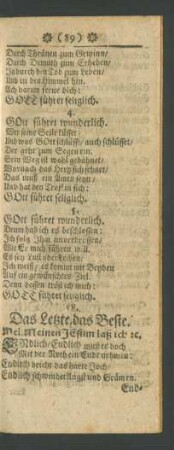 (89)
Durch Thränen zum Gewinn/
Durch Demuth zum Erheben/
Ja durch den Tod zum Leben/
Und in den Himmel hin.
Ach darum lerne dich:
GOTT führet seliglich.
4.
GOtt führet wunderlich.
Wer seine Seile küsset/
Und was GOtt schlüsst/ auch schlüsset/
Der geht zum Segen ein.
Sein Weg ist wohl gebähnet/
Wornach das Hertz sich sehnet/
Das muß ein Amen seyn/
Und hat den Trost in sich:
GOtt führet seliglich.
5.
GOtt führet wunderlich.
Drum hab ich es beschlossen:
Ich folg Ihm unverdrossen/
Wie Er mich führen will.
Es sey
Ich weiß/ es kommt mit Beyden
Auf ein gewünschtes Ziel.
Denn dessen tröst ich mich:
GOTT führet seliglich.
Das Letzte, das Beste.
Mel. Meinen JEsum laß ich ic.
ENdlich/ Endlich muß es doch
Mit der Noth ein Ende nehmen:
Endlich bricht das harte Joch/
Endlich schwindet Angst und Grämen.
End-